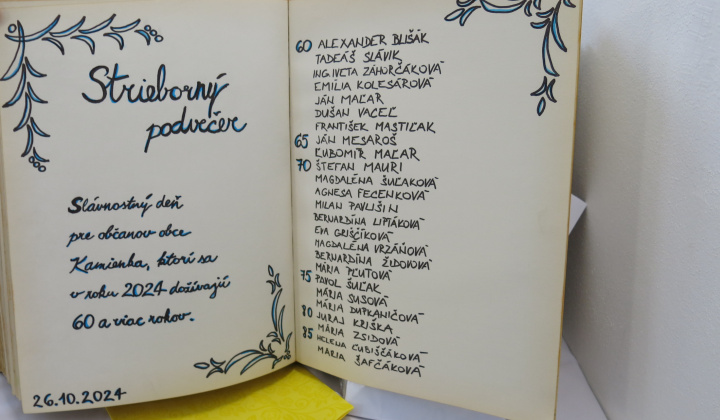 Strieborný
podvečer
Slávnostný deň
pre občanov obce
Kamienka, ktorí sa
v roku 2024 dožívajú
60 a viac rokov.
26.10.2024
60 ALEXANDER BLIŠÁK
TADEÁŠ SLÁVIK
ING. IVETA ZÁHURČÁKOVÁ
EMÍLIA KOLESÁROVÁ
JÁN MAĽAR
DUŠAN VACEĽ
FRANTIŠEK MASTIĽAK
65 JÁN MESAROŠ
ĽUBOMÍR MAĽAR
70 ŠTEFAN MAURI
MAGDALÉNA ŠUĽAKOVÁ
AGNESA FECENKOVÁ
MILAN PAVLIŠIN
BERNARDÍNA LIPTÁKOVÁ
EVA GRIŠČÍKOVÁ
MAGDALÉNA VRZÁŇOVÁ
BERNARDÍNA ŽIDOVOVÁ
MÁRIA PLUTOVÁ
75 PAVOL ŠUĽAK
MÁRIA SUSOVÁ
MÁRIA DUFKANIČOVÁ
80 JURAJ KRIŠKA
MÁRIA ZSIDOVÁ
85 HELENA ĽUBIŠČÁKOVÁ
MARIA ŠAFČÁKOVÁ